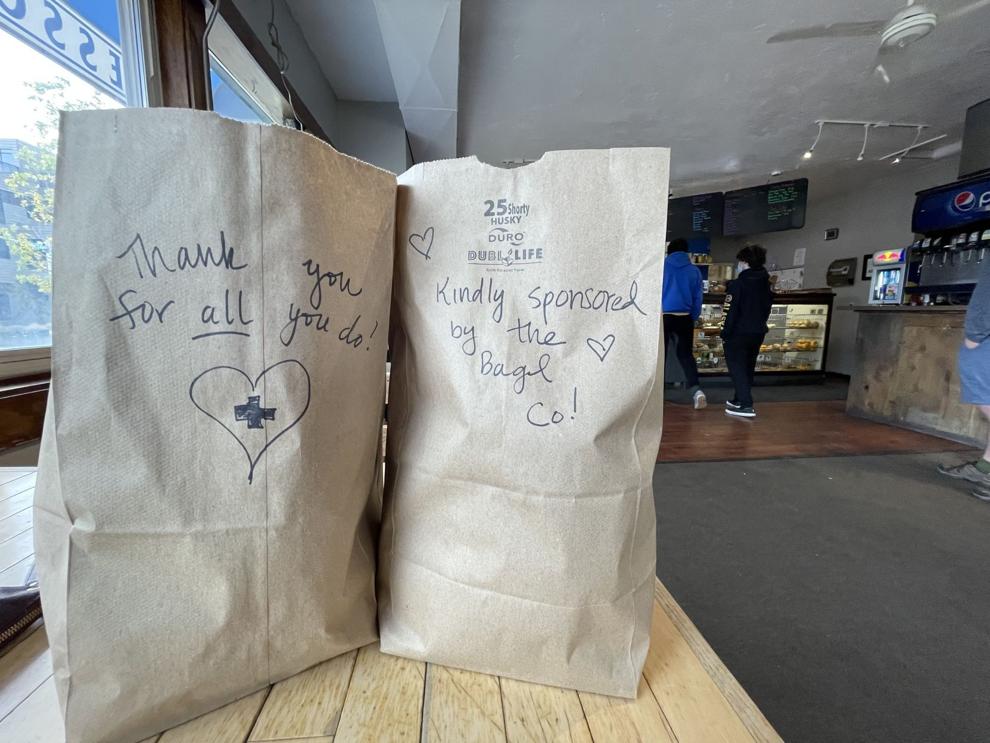 ESSO
Thank you
for all you do!
25 Shorty
HUSKY
DURO
DUBL LIFE
Kindly sponsored
by the
Bagel
Co!
Red Bull